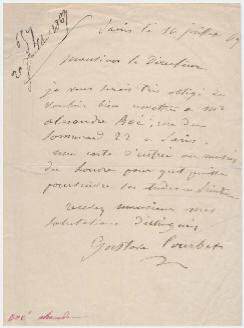 Paris le 16 juillet 69
Monsieur le Directeur
je vous serais très obligé de
vouloir bien remettre à Mr
alexandre Boé, rue du
sommerard 22 à Paris.
une carte d'entrée au musée
du Louvre pour qu'il puisse
poursuivre ses études de
recevez monsieur mes
salutations distinguées
Gustave Courbet
Boé